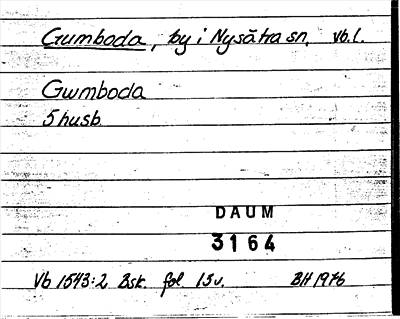 Gumboda, by i Nysätra sn, Vb.l.
Gwmboda
5 husb.
DAUM
3164
Vb 1543:2 Bsk. fol. 15v. BH 1976